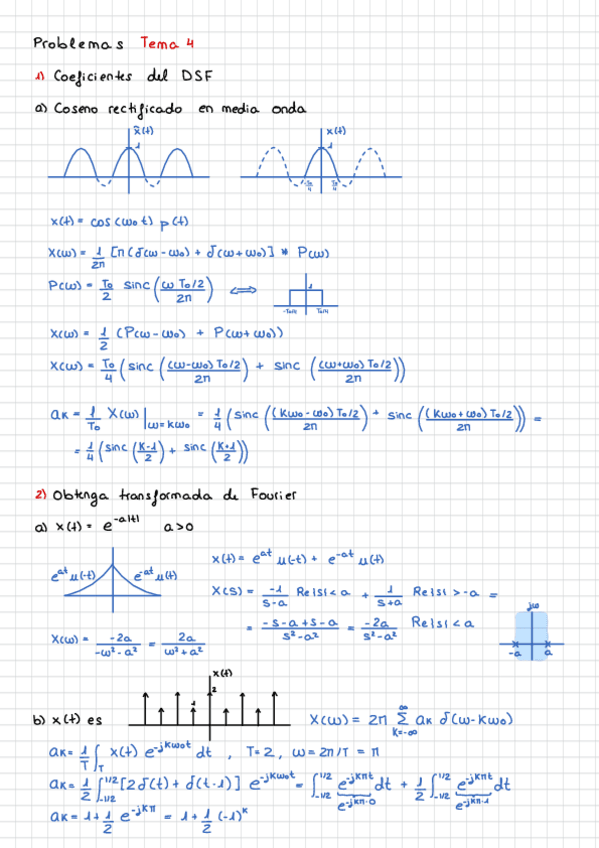 Problemas Tema 4
1) Coeficientes del DSF
a) Coseno rectificado en media onda
x̃(t) 1
x(t) 1
-To/4 To/4
x(t) = cos(ωot) p(t)
X(ω) = 1/2π [π(δ(ω-ωo) + δ(ω+ωo)] * P(ω)
P(ω) = To/2 sinc(ω To/2 / 2π) ⟺ 1 -To/4 To/4
X(ω) = 1/2 (P(ω-ωo) + P(ω+ωo))
X(ω) = To/4 (sinc((ω-ωo) To/2 / 2π) + sinc((ω+ωo) To/2 / 2π))
aK = 1/To X(ω)|ω=Kωo = 1/4 (sinc((Kωo-ωo) To/2 / 2π) + sinc((Kωo+ωo) To/2 / 2π)) =
= 1/4 (sinc(K-1 / 2) + sinc(K+1 / 2))
2) Obtenga transformada de Fourier
a) x(t) = e^-a|t| a>0
e^at μ(-t) e^-at μ(t)
x(t) = e^at μ(-t) + e^-at μ(t)
X(s) = -1/s-a Re|s|<a + 1/s+a Re|s|>-a =
= -s-a+s-a / s²-a² = -2a / s²-a² Re|s|<a
jω
-a a
X(ω) = -2a / -ω²-a² = 2a / ω²+a²
b) x(t) es
x(t)
2
1
X(ω) = 2π Σ K=-∞ ∞ aK δ(ω-Kωo)
aK = 1/T ∫T x(t) e^-jKωot dt , T=2, ω=2π/T = π
aK = 1/2 ∫-1/2 1/2 [2δ(t) + δ(t-1)] e^-jKωot = ∫-1/2 1/2 e^-jKπt dt + 1/2 ∫-1/2 1/2 e^-jKπt dt
e^-jKπ·0 e^-jKπ·1
aK = 1 + 1/2 e^-jKπ = 1 + 1/2 (-1)^K